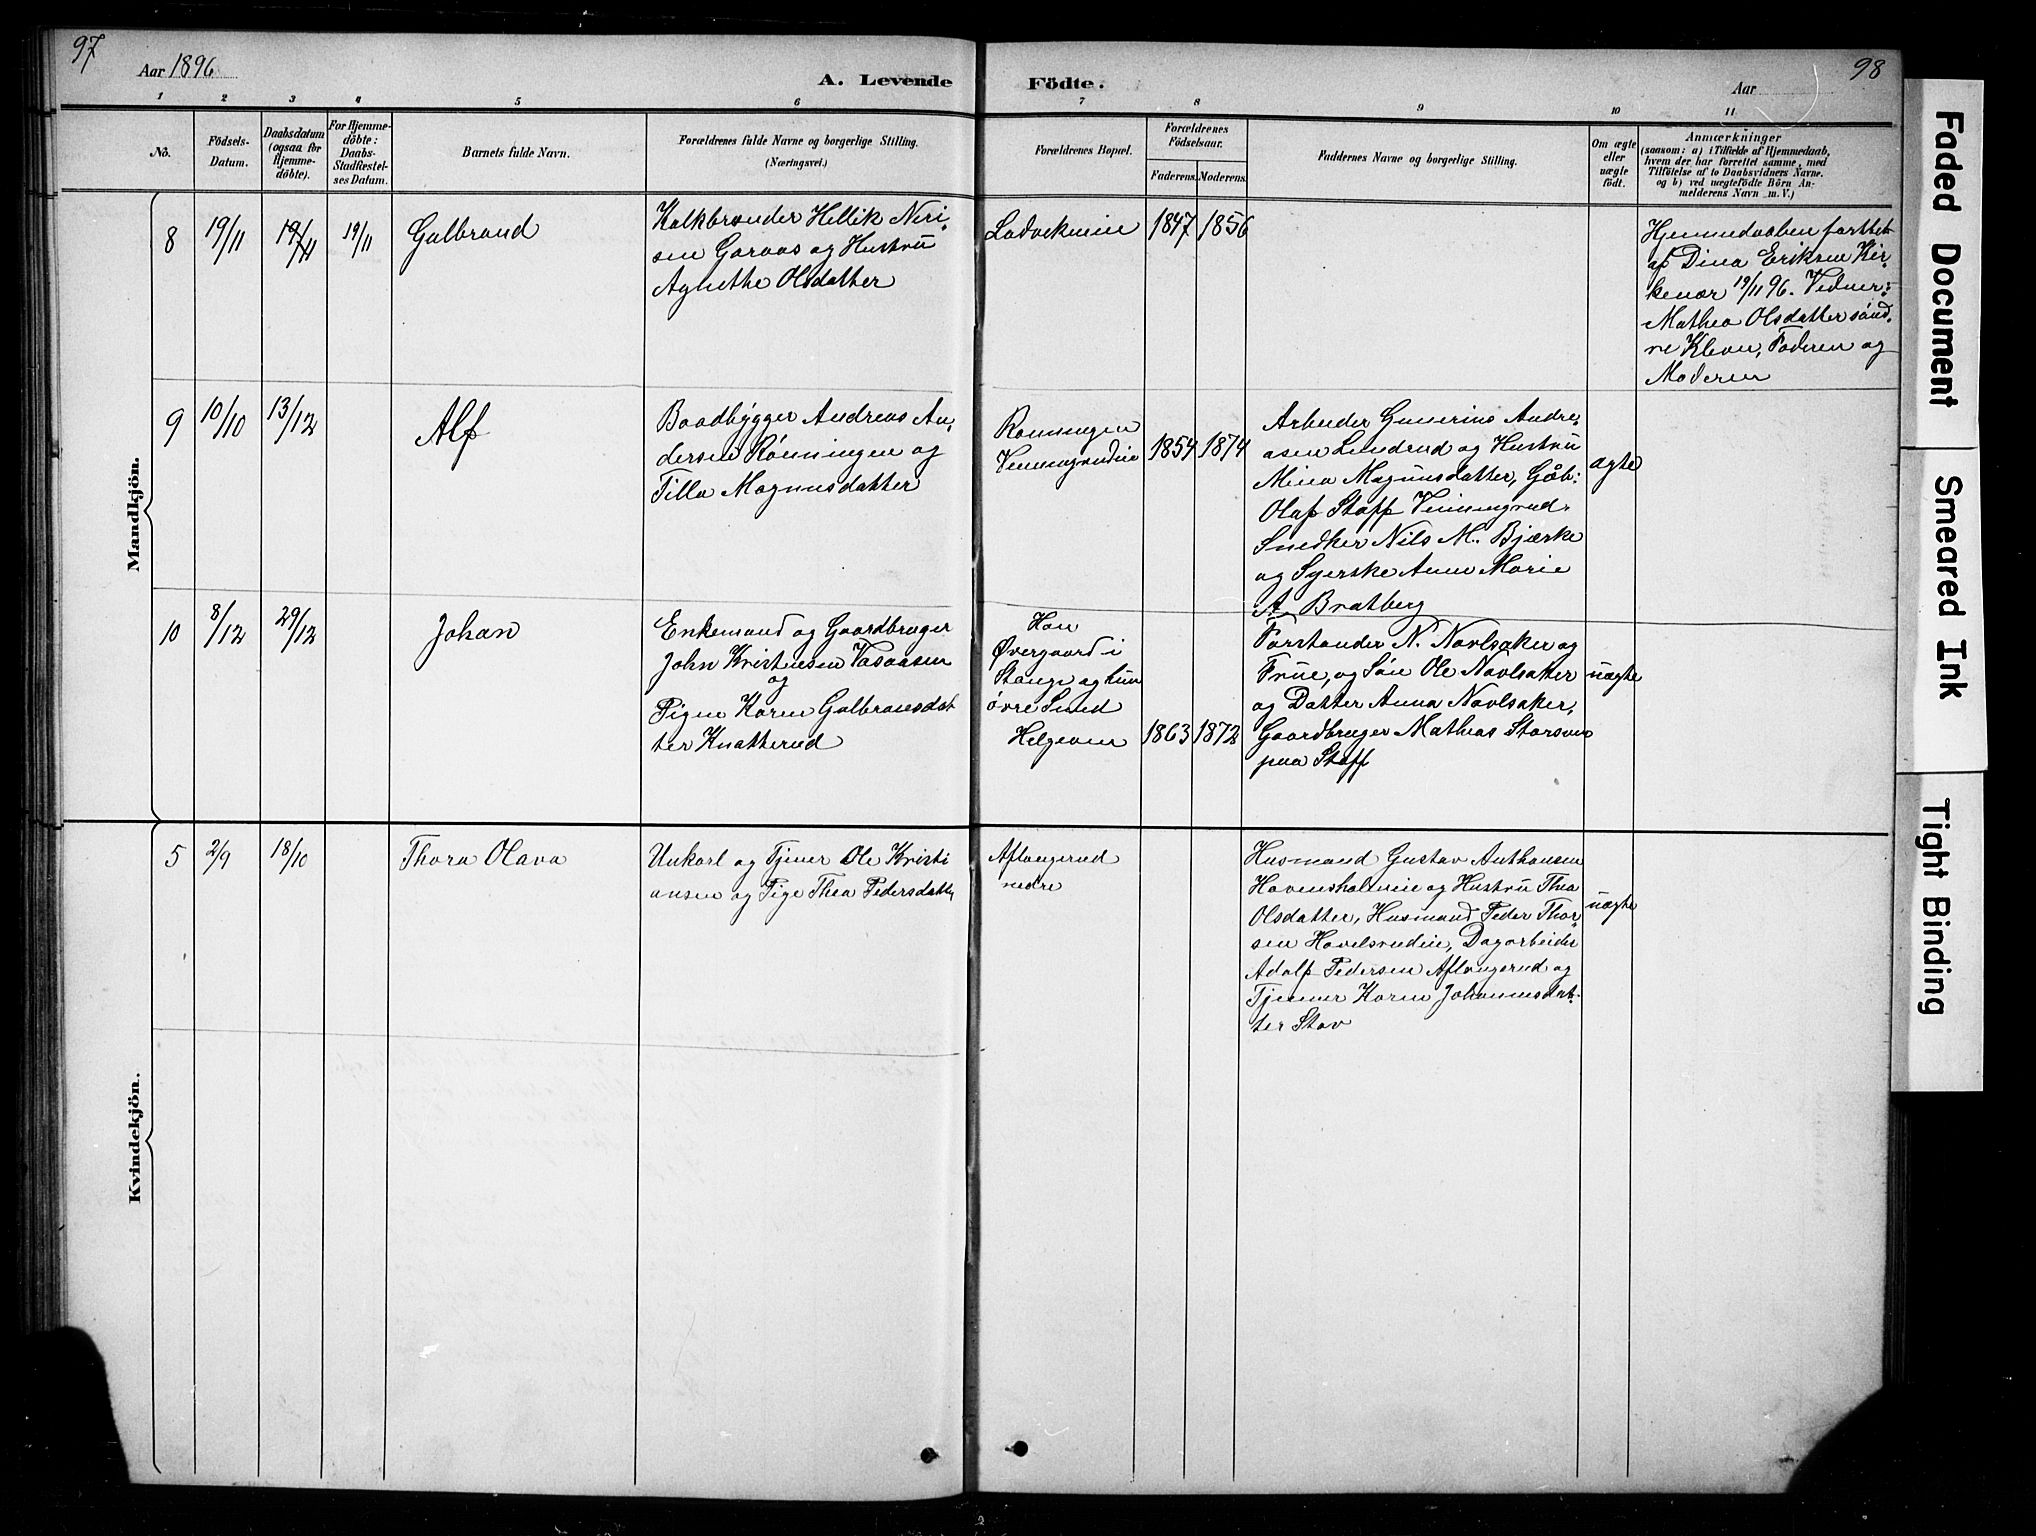 97
Aar 1896
A. Levende
Födte.
Aar
98
1 2 3 4 5 6 7 8 9 10 11
No.
Födsels-
Datum.
Daabsdatum
(ogsaa for
Hjemme-
döbte).
For Hjemme-
döbte:
Daabs-
Stadfæstel-
ses Datum.
Barnets fulde Navn.
Forældrenes fulde Navne og borgerlige Stilling.
(Næringsvei.)
Forældrenes Bopæl.
Forældrenes
Födselsaar.
Faderens. Moderens.
Faddernes Navne og borgerlige Stilling.
Om ægte
eller
uægte
födt.
Anmærkninger
(saasom: a) i Tilfælde af Hjemmedaab,
hvem der har forrettet samme, med
Tilföielse af to Daabsvidners Navne.
og b) ved uægtefödte Börn An-
melderens Navn m. V.)
Mandkjön.
8
19/11
19/11
19/11
Gulbrand
Kalkbrænder Hellik Niri-
sen Garaas og Hustru
Agnethe Olsdatter
1847
1856
Hjemmedaaben forttet
af Dina Eriksen Kir-
kenær 19/11 96. Vidner:
Mathea Olsdatter sönd-
re Kleven, Faderen og
Moderen
9
10/10
13/12
Alf
Baadbygger Andreas An-
dersen Rönningen og
Tilla Magnusdatter
Rönningen
1854
1874
Arbeider Gunerius Andre-
asen Linderud og Hustru
Mina Magnusdatter, Gåb:
Olaf Staff Venningrud.
Snedker Nils M. Bjærke
og Syerske Anne Marie
A. Bratberg
ægte
10
8/12
29/12
Johan
Enkemand og Gaardbruger
John Kristensen Vasaasen
og
Pigen Karen Gulbransdat
ter Knatterud
Han
Øvergaard i
Stange og hun
övre Sund
Helgøen
1863
1872
Forstander N. Navlsaker og
Frue, og Sön Ole Navlsaker
og Datter Anna Navlsaker,
Gaardbruger Mathias Storsveen
paa Staff
uægte
Kvindekjön.
5
2/9
18/10
Thora Olava
Unkarl og Tjener Ole Kristi
ansen og Pige Thea Pedersdatter
Aflangerud
nedre
Husmand Gustav Anthonsen
Hovinsholmeie og Hustru Thea
Olsdatter, Husmand Peder Thor-
sen Hovelsrudeie, Dagarbeider
Adolf Pedersen Aflangerud og
Tjener Karen Johannesdat-
ter Stav
uægte
Faded Document
Smeared Ink
Tight Binding